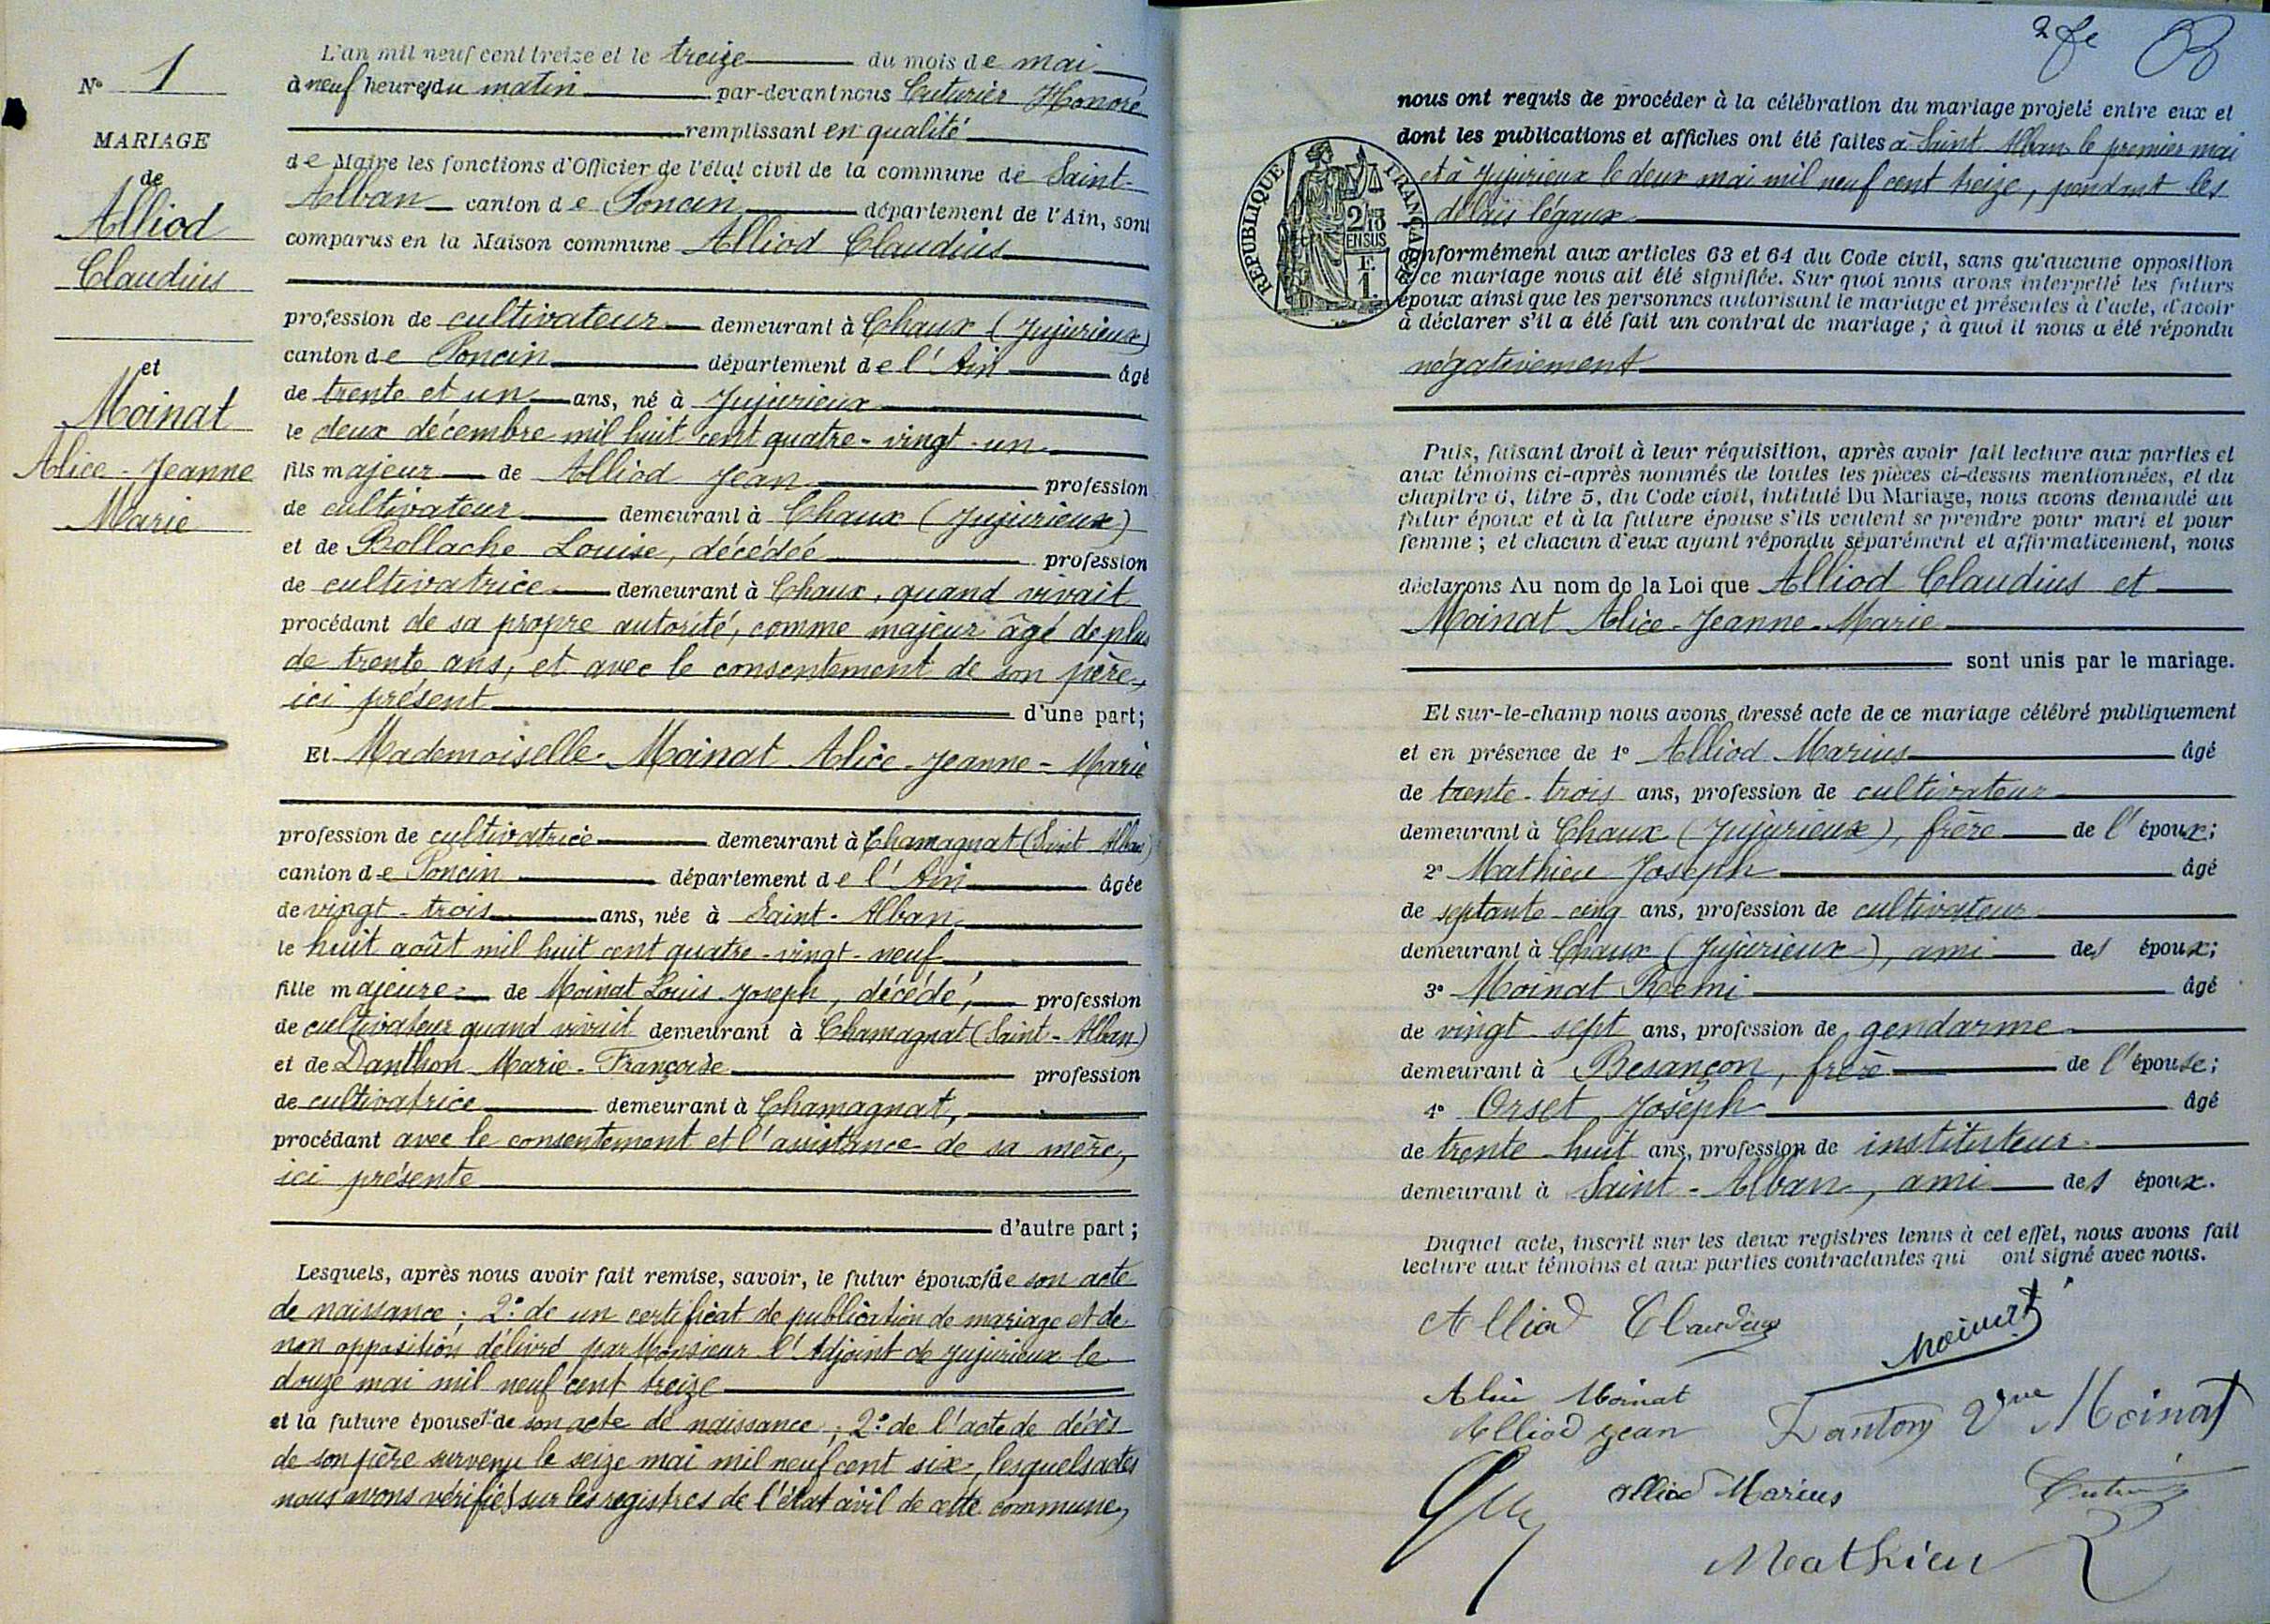 N° 1
MARIAGE
de
Alliod
Claudius
et
Moinat
Alice-Jeanne
Marie
L'an mil neuf cent treize et le treize du mois de mai
à neuf heures du matin par-devant nous Cuturier Honoré
remplissant en qualité
de Maire les fonctions d'Officier de l'état civil de la commune de Saint-
Alban canton de Poncin département de l'Ain, sont
comparus en la Maison commune Alliod Claudius
profession de cultivateur demeurant à Chaux (Jujurieux)
canton de Poncin département de l'Ain âgé
de trente et un ans, né à Jujurieux
le deux décembre mil huit cent quatre-vingt-un
fils majeur de Alliod Jean profession
de cultivateur demeurant à Chaux (Jujurieux)
et de Bollache Louise, décédée profession
de cultivatrice demeurant à Chaux, quand vivait
procédant de sa propre autorité, comme majeur âgé de plus
de trente ans, et avec le consentement de son père,
ici présent d'une part;
Et Mademoiselle Moinat Alice-Jeanne-Marie
profession de cultivatrice demeurant à Chamagnat (Saint Alban)
canton de Poncin département de l'Ain âgée
de vingt-trois ans, née à Saint-Alban
le huit août mil huit cent quatre-vingt-neuf
fille majeure de Moinat Louis Joseph, décédé, profession
de cultivateur quand vivait demeurant à Chamagnat (Saint-Alban)
et de Danthon Marie-Françoise profession
de cultivatrice demeurant à Chamagnat,
procédant avec le consentement et l'assistance de sa mère,
ici présente
d'autre part;
Lesquels, après nous avoir fait remise, savoir, le futur époux 1° de son acte
de naissance; 2° de un certificat de publication de mariage et de
non opposition délivré par Monsieur l'Adjoint de Jujurieux le
douze mai mil neuf cent treize
et la future épouse 1° de son acte de naissance; 2° de l'acte de décès
de son père survenu le seize mai mil neuf cent six, lesquels actes
nous avons vérifiés sur les registres de l'état civil de cette commune,
2 fe
nous ont requis de procéder à la célébration du mariage projeté entre eux et
dont les publications et affiches ont été faites à Saint Alban le premier mai
et à Jujurieux le deux mai mil neuf cent treize, pendant les
délais légaux
RÉPUBLIQUE FRANÇAISE
2/10
EN SUS
F.
1.
conformément aux articles 63 et 64 du Code civil, sans qu'aucune opposition
à ce mariage nous ait été signifiée. Sur quoi nous avons interpellé les futurs
époux ainsi que les personnes autorisant le mariage et présentes à l'acte, d'avoir
à déclarer s'il a été fait un contrat de mariage; à quoi il nous a été répondu
négativement
Puis, faisant droit à leur réquisition, après avoir fait lecture aux parties et
aux témoins ci-après nommés de toutes les pièces ci-dessus mentionnées, et du
chapitre 6, titre 5, du Code civil, intitulé Du Mariage, nous avons demandé au
futur époux et à la future épouse s'ils veulent se prendre pour mari et pour
femme; et chacun d'eux ayant répondu séparément et affirmativement, nous
déclarons Au nom de la Loi que Alliod Claudius et
Moinat Alice-Jeanne-Marie
sont unis par le mariage.
Et sur-le-champ nous avons dressé acte de ce mariage célébré publiquement
et en présence de 1° Alliod Marius âgé
de trente-trois ans, profession de cultivateur
demeurant à Chaux (Jujurieux), frère de l'époux;
2° Mathieu Joseph âgé
de septante-cinq ans, profession de cultivateur
demeurant à Chaux (Jujurieux), ami des époux;
3° Moinat Rémi âgé
de vingt sept ans, profession de gendarme
demeurant à Besançon, frère de l'épouse;
4° Orset Joseph âgé
de trente-huit ans, profession de instituteur
demeurant à Saint-Alban, ami des époux.
Duquel acte, inscrit sur les deux registres tenus à cet effet, nous avons fait
lecture aux témoins et aux parties contractantes qui ont signé avec nous.
Alliod Claudius
Moinat
Alice Moinat
Alliod Jean Danton Vve Moinat
Alliod Marius
Mathieu